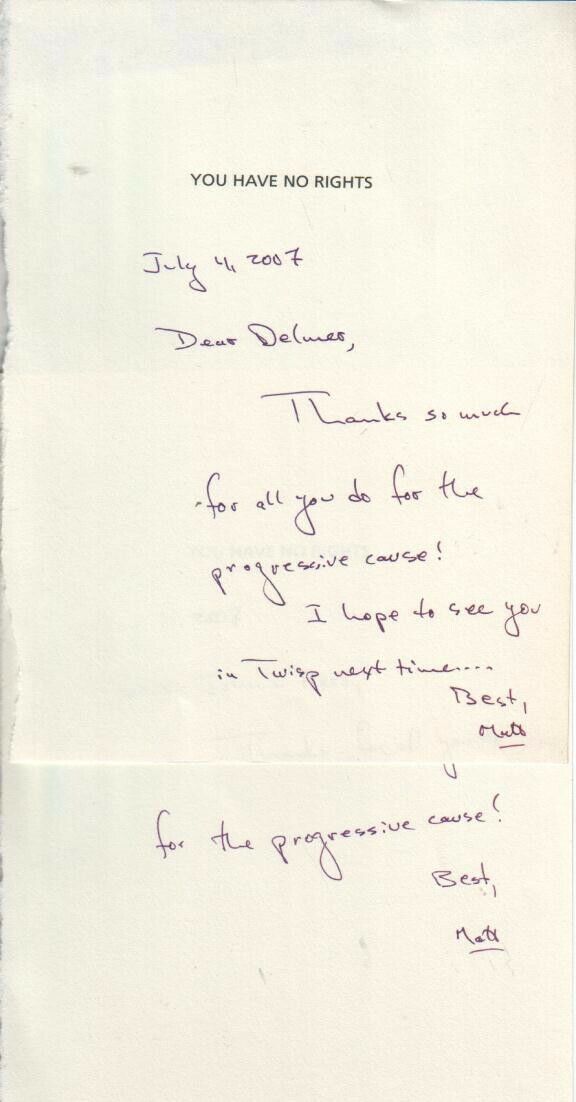 YOU HAVE NO RIGHTS
July 4, 2007
Dear Delmer,
Thanks so much
for all you do for the
progressive cause!
I hope to see you
in Twisp next time....
Best,
Matt
for the progressive cause!
Best,
Matt